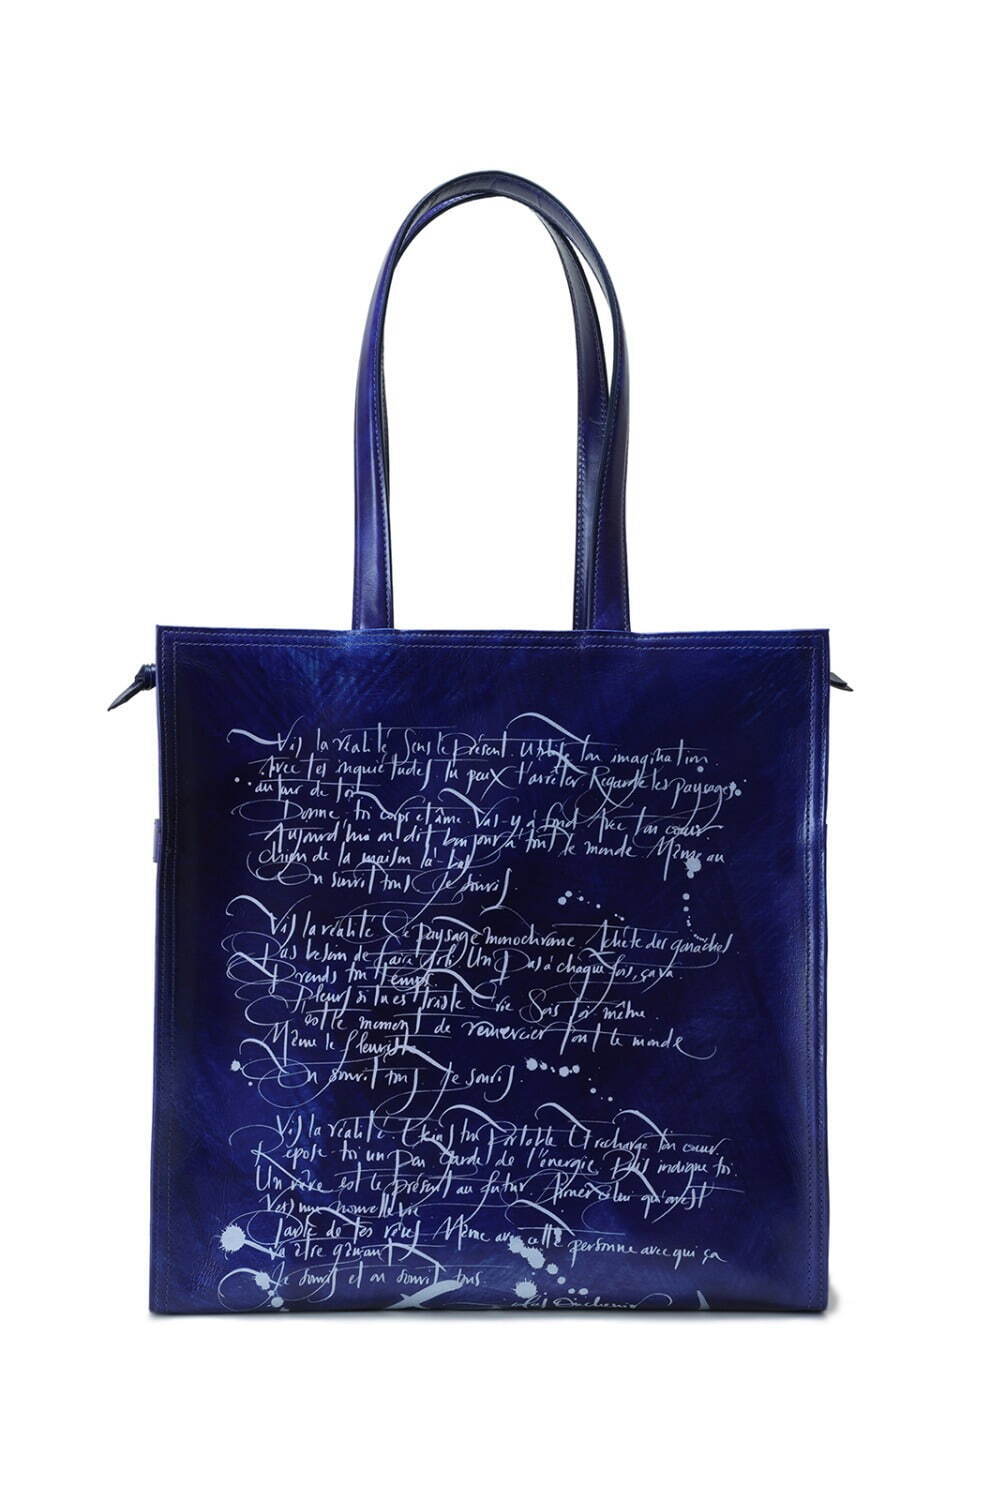 Vis la réalité Sens le présent Utilise ton imagination
Avec tes inquiétudes tu peux t'arrêter Regarde les paysages
autour de toi
Donne toi corps et âme Vas-y à fond Avec ton coeur
Aujourd'hui on dit bonjour à tout le monde Même au
chien de la maison là-bas
On sourit tous Je souris
Vis la réalité Le paysage monochrome Achète des
Pas besoin de faire Un pas à chaque fois, ça va
Prends ton temps
Pleure si tu es triste Crie Sois toi même
C'est le moment de remercier tout le monde
Même le fleuriste
On sourit tous Je souris
Vis la réalité Eteins ton portable Et recharge ton coeur
Repose toi un peu Garde de l'énergie Puis indigne toi
Un rêve est le présent au futur
Vers une nouvelle vie
Parle de tes rêves Même avec cette personne avec qui ça
va être gênant
Je souris et on sourit tous